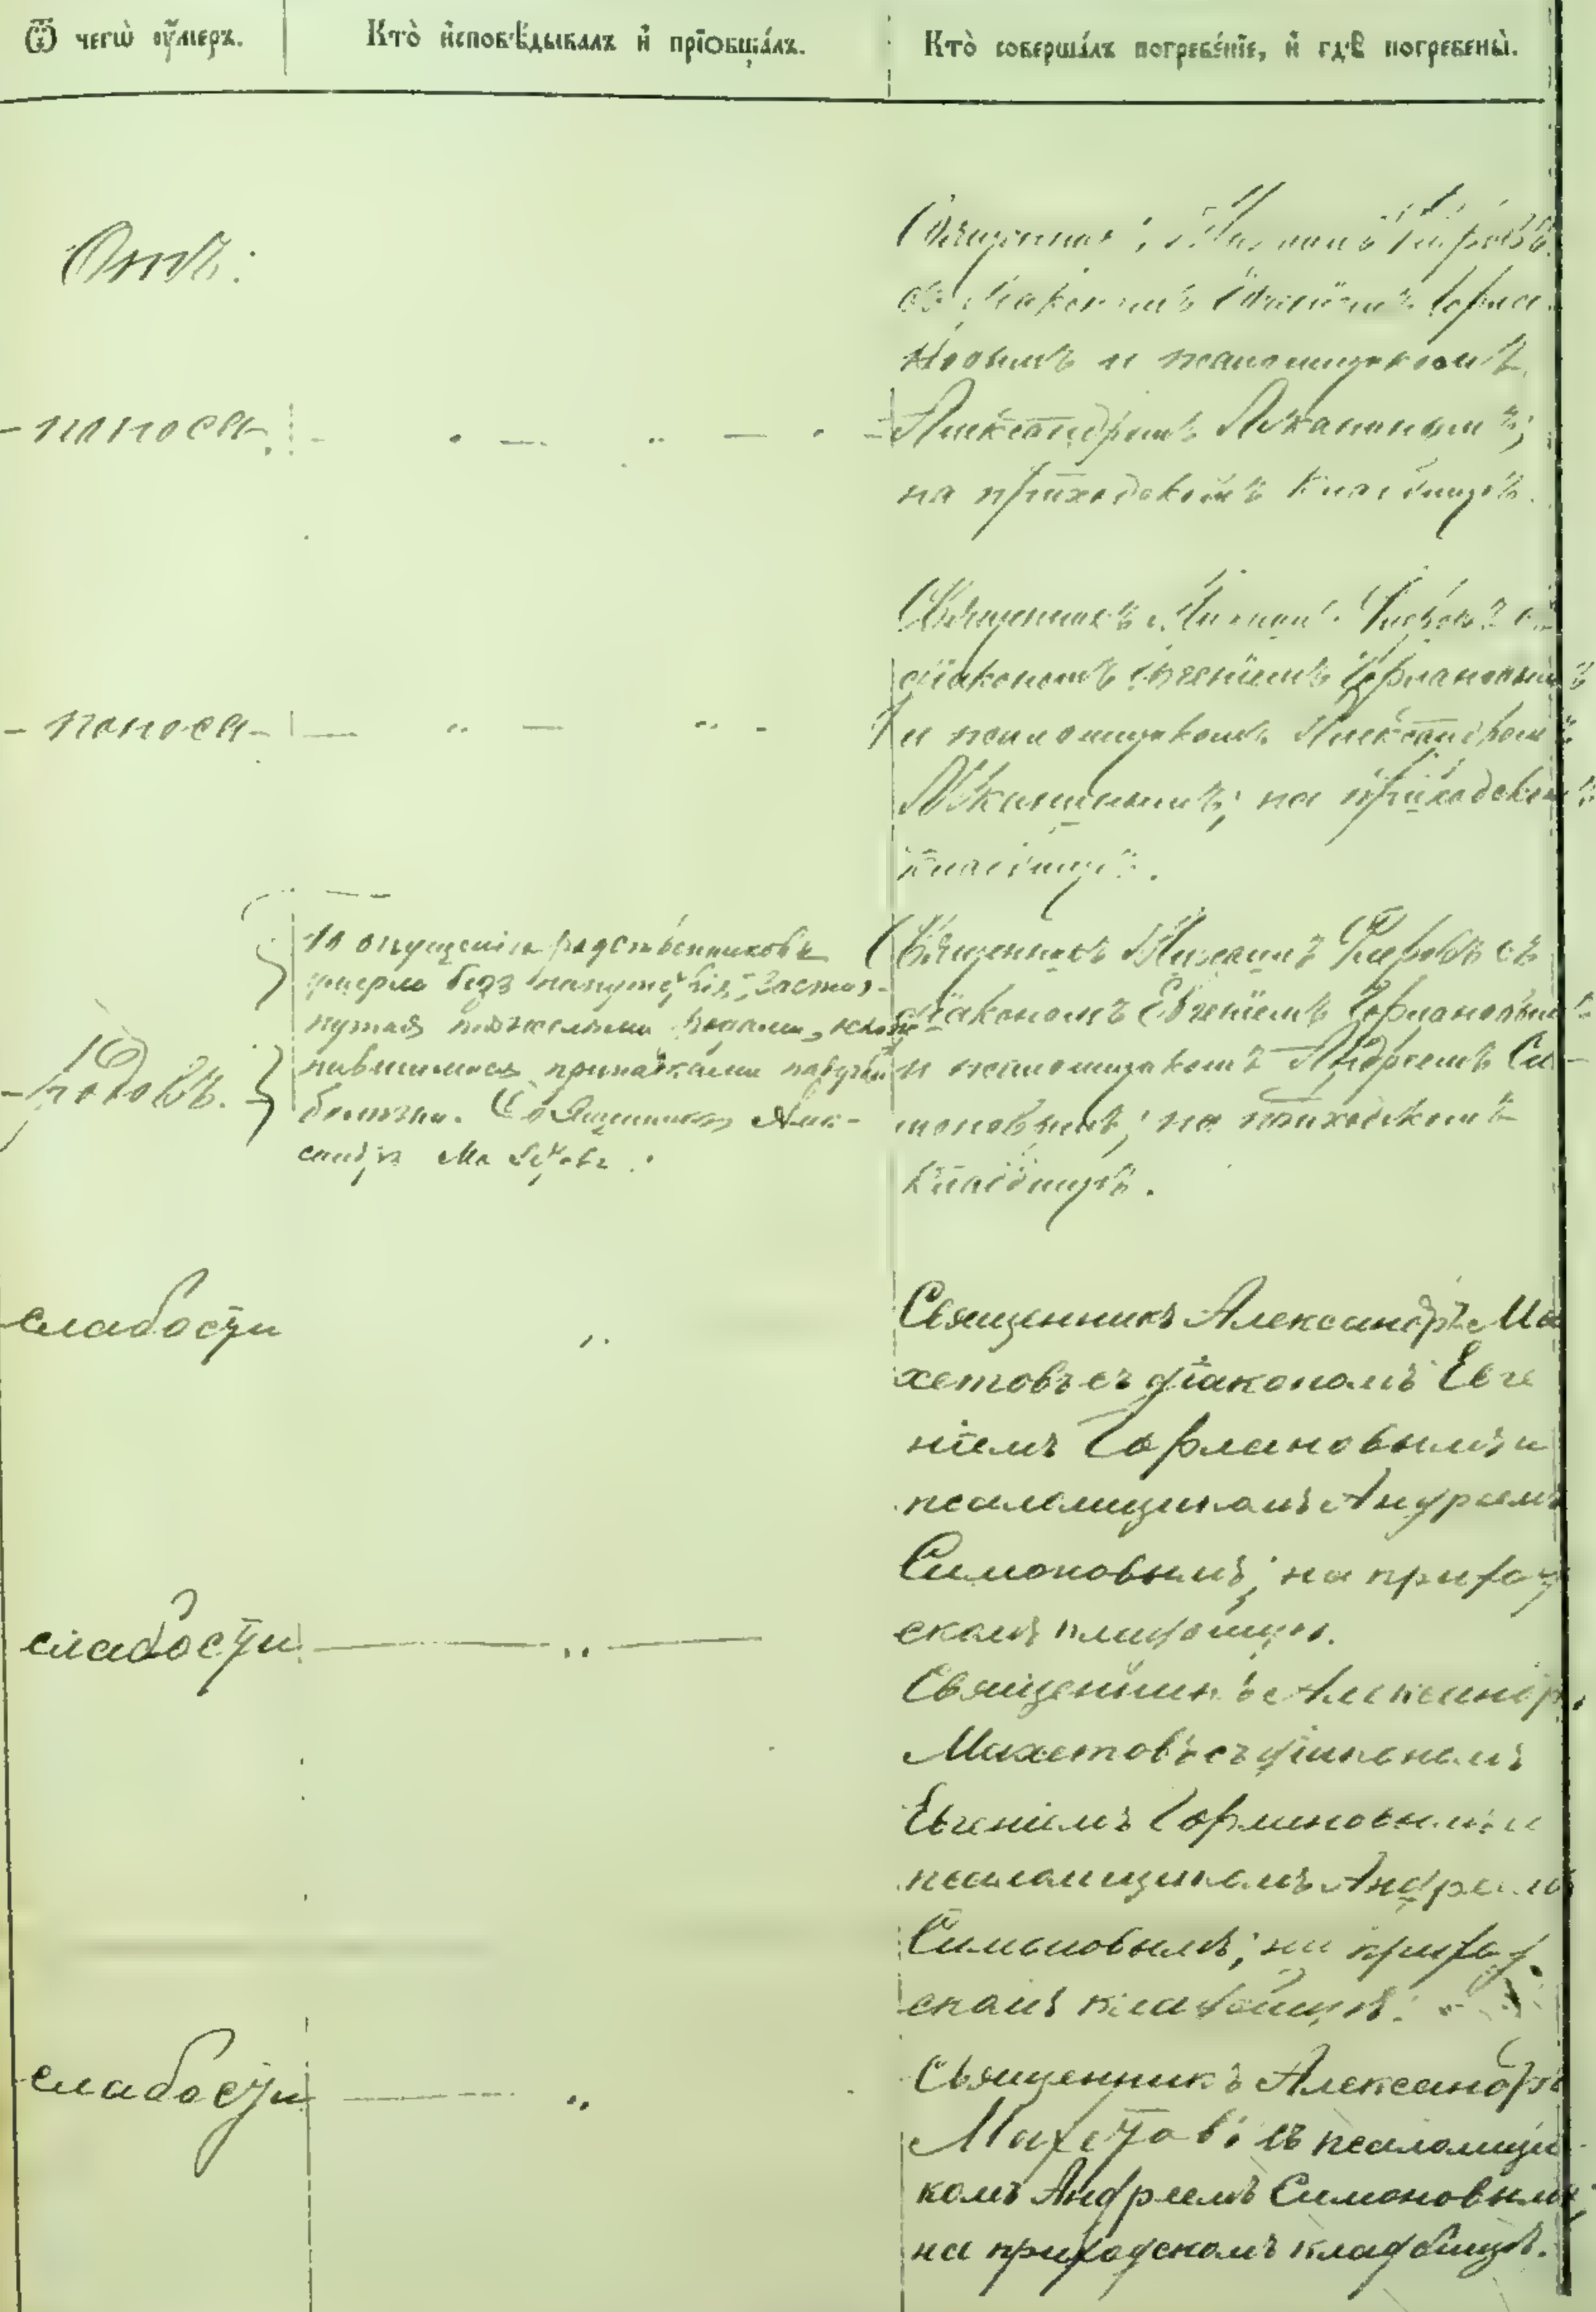 Ѿ чегѡ ᲂу҆́меръ.
Кто̀ и҆сповѣ́дывалъ и҆ прїѡбща́лъ.
Кто̀ соверша́лъ погребе́нїе, и҆ гдѣ̀ погребены̀.
Отъ:
Священникъ Михаилъ
съ діакономъ Евгеніемъ Горма-
новымъ и псаломщикомъ
- поноса -
Александромъ Лѣканинымъ;
на приходскомъ кладбищѣ.
Священникъ Михаилъ съ
діакономъ Евгеніемъ Гормановымъ
- поноса -
и псаломщикомъ Александромъ
Лѣканинымъ; на приходскомъ
кладбищѣ.
- родовъ. -
По опущенію родственниковъ
умерла безъ напутствія, застиг-
нутая тяжелыми родами,
припадками
болѣзни. Священникъ Алек-
сандръ Махетовъ.
Священникъ Михаилъ съ
діакономъ Евгеніемъ Гормановымъ
и псаломщикомъ Андреемъ Си-
моновымъ; на приходскомъ
кладбищѣ.
слабости
Священникъ Александръ Ма
хетовъ съ діакономъ Евге
ніемъ Гормановымъ и
псаломщикомъ Андреемъ
Симоновымъ; на приход
скомъ кладбищѣ.
слабости
Священникъ Александръ
Махетовъ съ діакономъ
Евгеніемъ Гормановымъ и
псаломщикомъ Андреемъ
Симоновымъ; на приход
скомъ кладбищѣ.
слабости
Священникъ Александръ
Махетовъ съ псаломщи
комъ Андреемъ Симоновымъ;
на приходскомъ кладбищѣ.